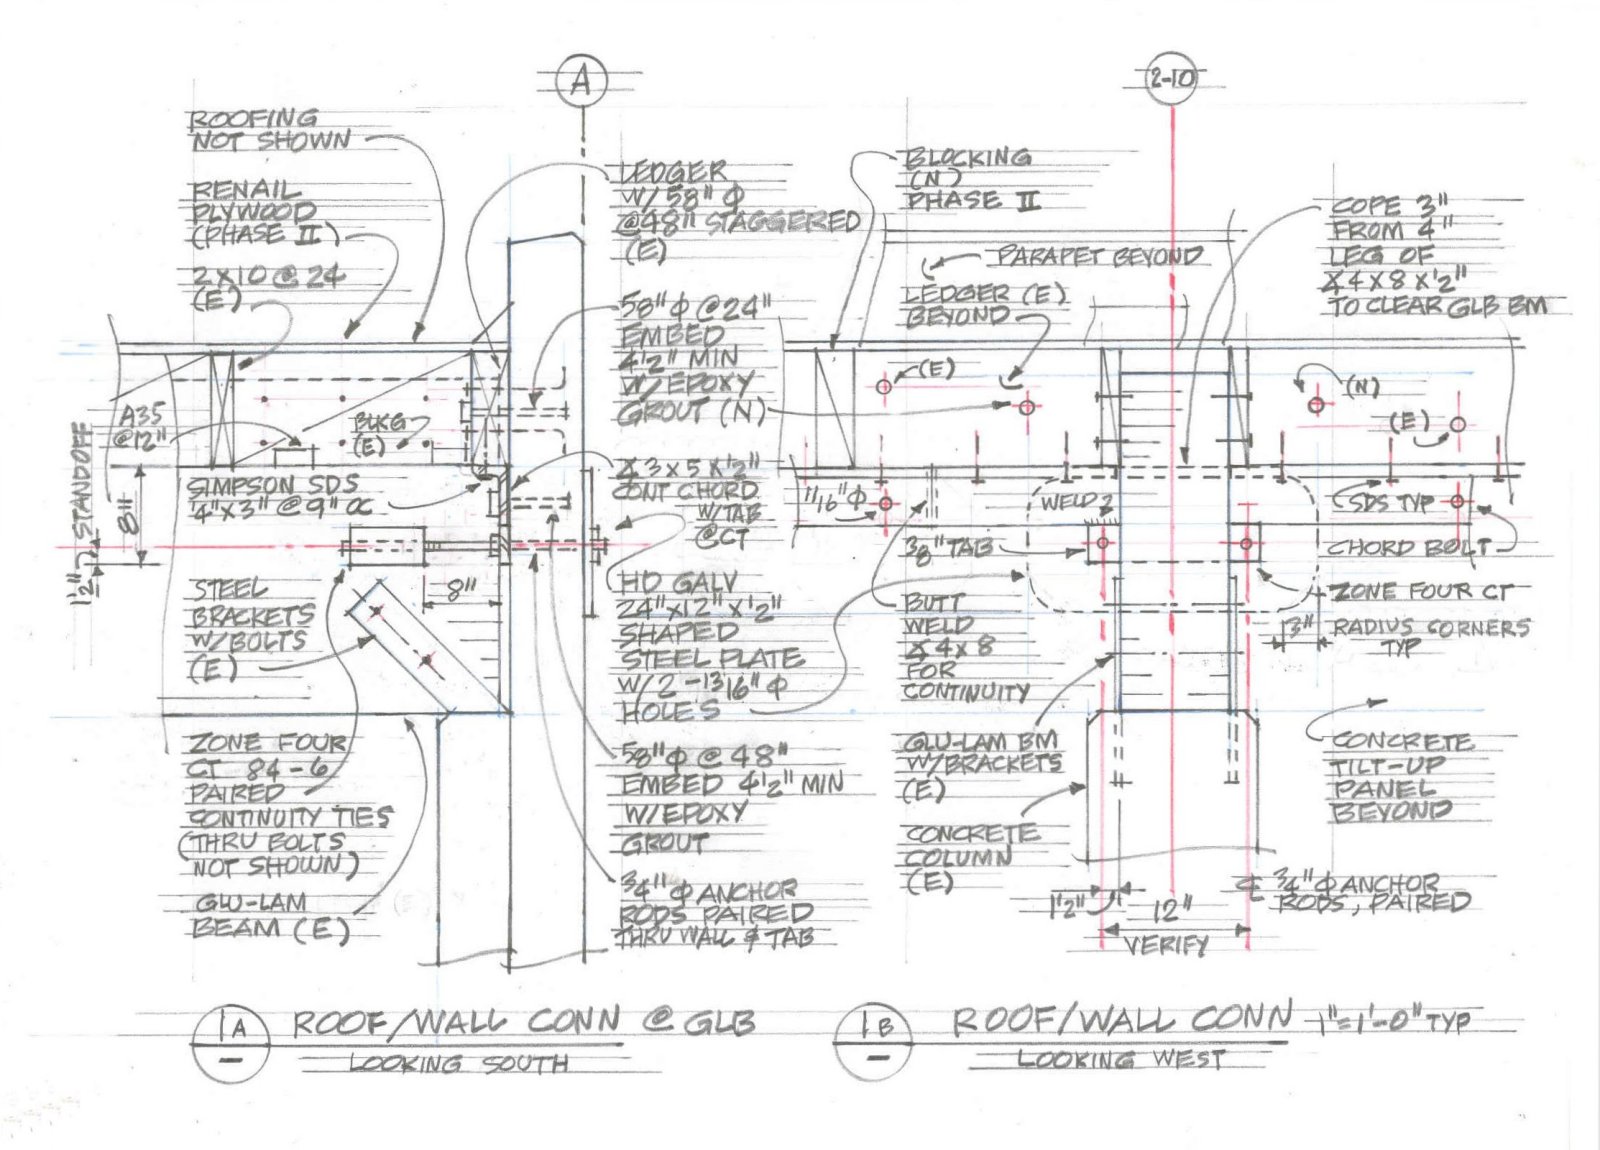 A
2-10
ROOFING
NOT SHOWN
RENAIL
PLYWOOD
(PHASE II)
2X10@24
(E)
A35
@12"
BLKG
(E)
STANDOFF
8"
1/2"
SIMPSON SDS
1/4"X3"@9"OC
8"
STEEL
BRACKETS
W/BOLTS
(E)
ZONE FOUR
CT 84-6
PAIRED
CONTINUITY TIES
(THRU BOLTS
NOT SHOWN)
GLU-LAM
BEAM (E)
LEDGER
W/58"Φ
@48" STAGGERED
(E)
58"Φ@24"
EMBED
4 1/2" MIN
W/EPOXY
GROUT (N)
∡3X5X1/2"
CONT CHORD
W/TAB
@CT
HD GALV
24"X12"X1/2"
SHAPED
STEEL PLATE
W/2-1316"Φ
HOLES
58"Φ@48"
EMBED 4 1/2" MIN
W/EPOXY
GROUT
3/4"Φ ANCHOR
RODS PAIRED
THRU WALL & TAB
BLOCKING
(N)
PHASE II
PARAPET BEYOND
LEDGER (E)
BEYOND
COPE 3"
FROM 4"
LEG OF
∡4X8X1/2"
TO CLEAR GLB BM
(E)
(N)
(E)
11/16"Φ
WELD
SDS TYP
3/8"TAB
CHORD BOLT
BUTT
WELD
∡4X8
FOR
CONTINUITY
ZONE FOUR CT
3"
RADIUS CORNERS
TYP
GLU-LAM BM
W/BRACKETS
(E)
CONCRETE
COLUMN
(E)
CONCRETE
TILT-UP
PANEL
BEYOND
1 1/2"
12"
VERIFY
℄ 3/4"Φ ANCHOR
RODS, PAIRED
1A
-
ROOF/WALL CONN @ GLB
LOOKING SOUTH
1B
-
ROOF/WALL CONN 1"=1'-0" TYP
LOOKING WEST